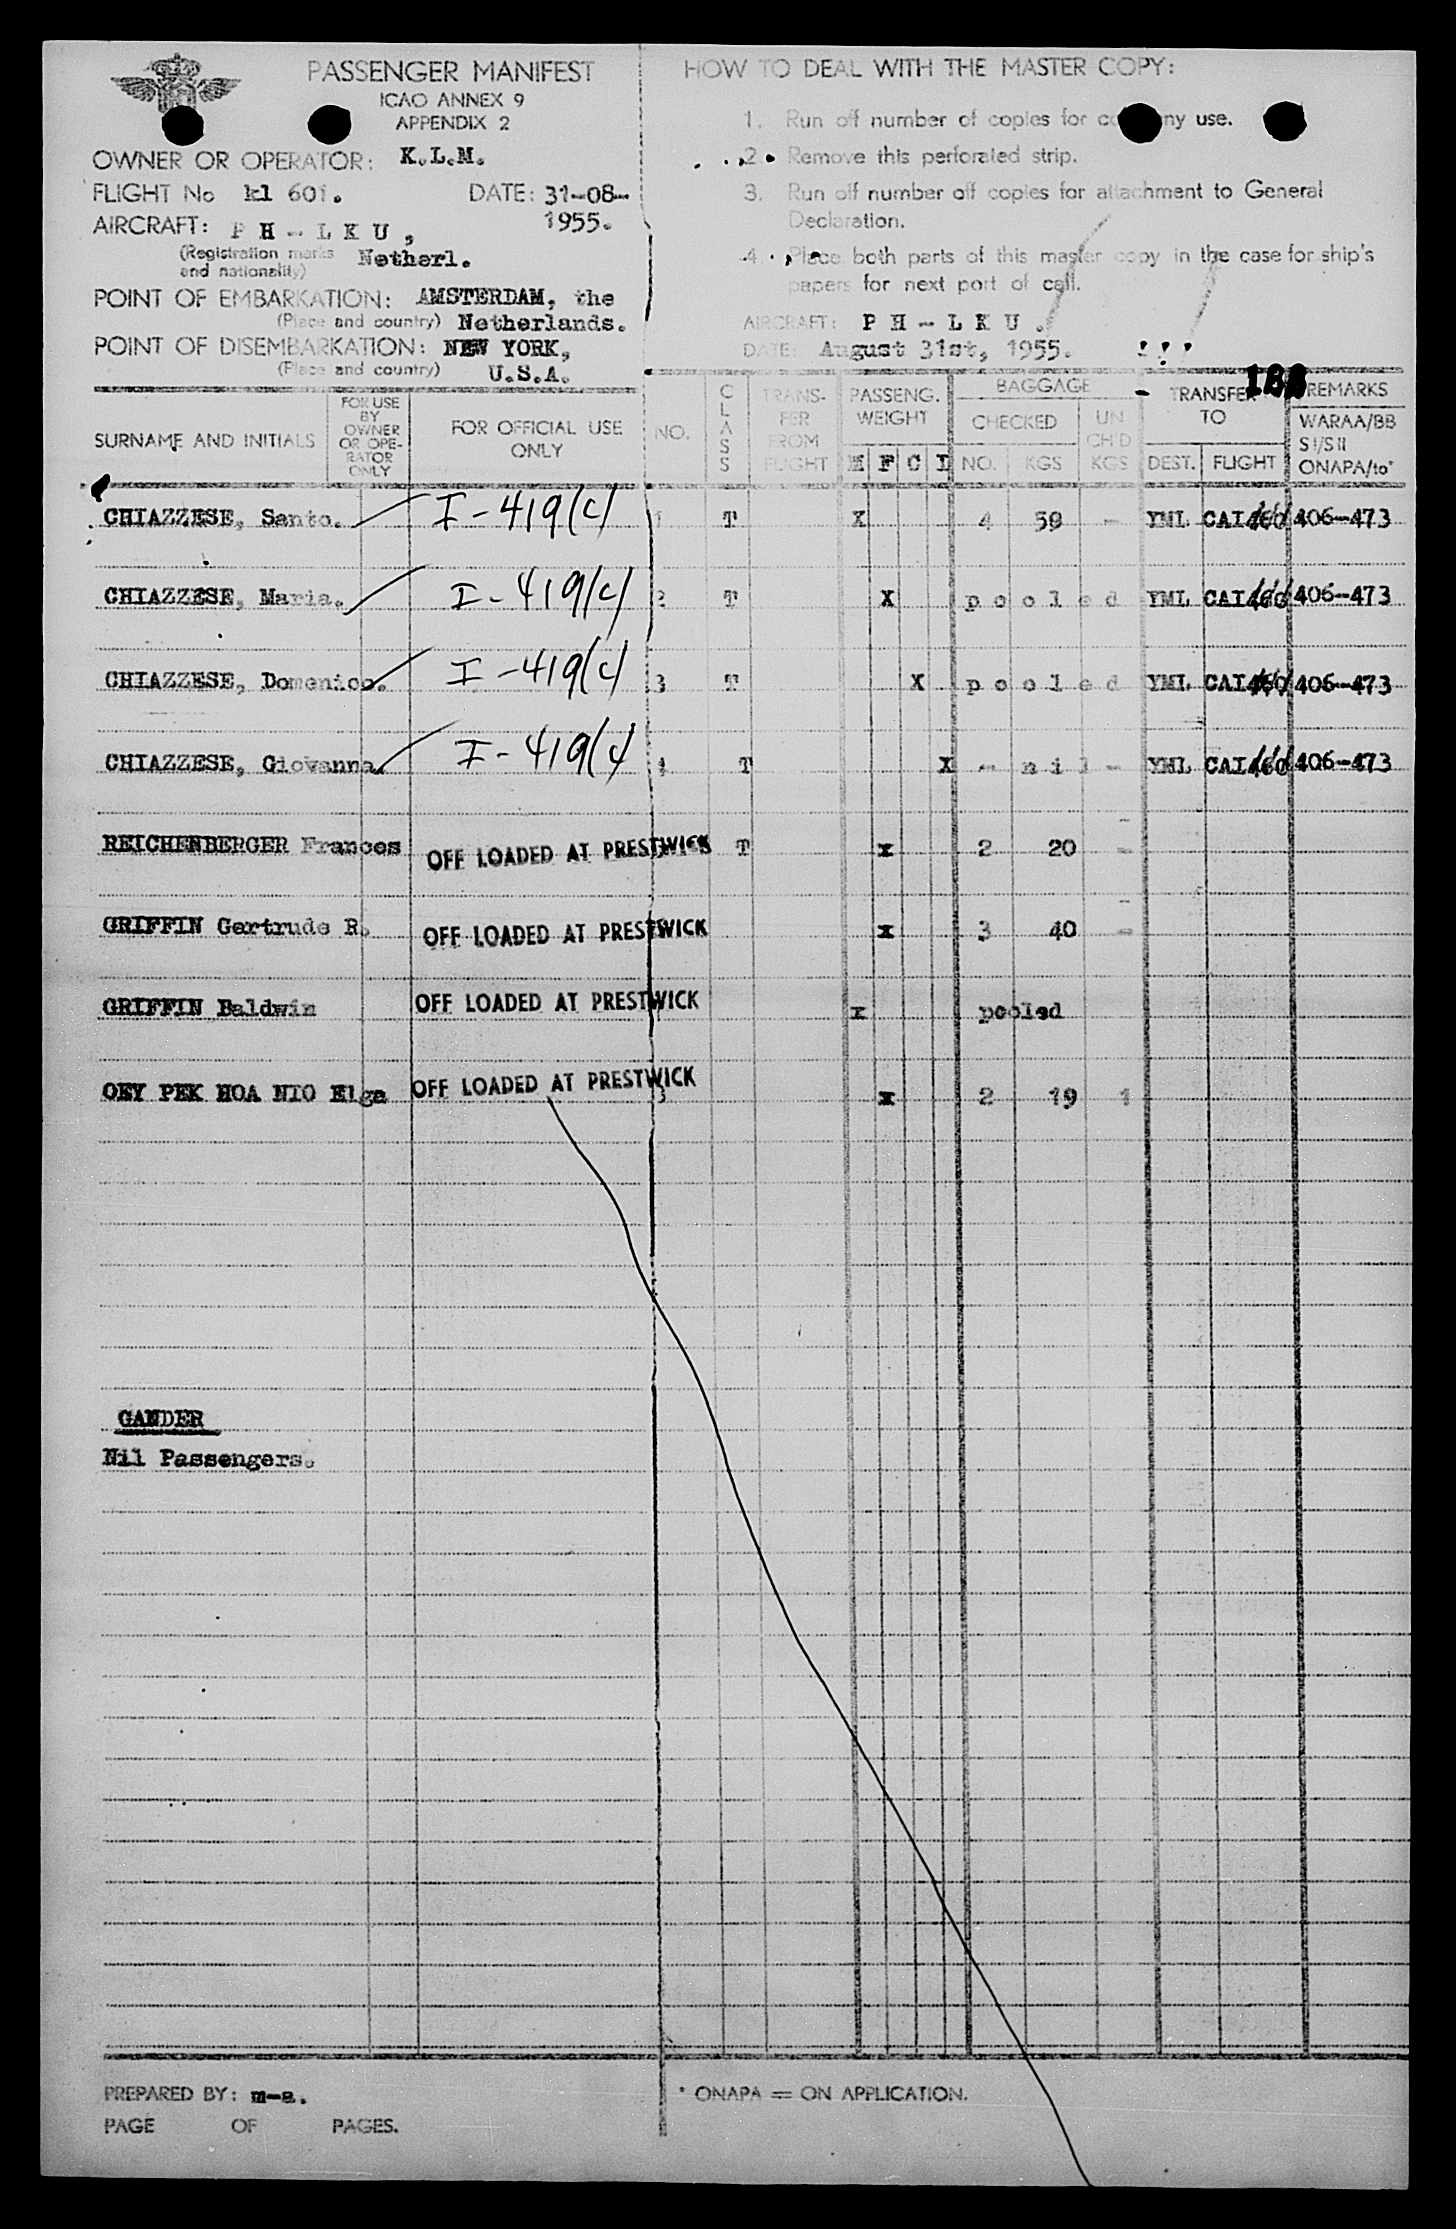 PASSENGER MANIFEST
ICAO ANNEX 9
APPENDIX 2
OWNER OR OPERATOR: K.L.M.
FLIGHT No kl 601. DATE: 31-08-
1955.
AIRCRAFT: P H - L K U ,
(Registration marks and nationality) Netherl.
POINT OF EMBARKATION: AMSTERDAM, the
(Place and country) Netherlands.
POINT OF DISEMBARKATION: NEW YORK,
(Place and country) U.S.A.
HOW TO DEAL WITH THE MASTER COPY:
1. Run off number of copies for company use.
2. Remove this perforated strip.
3. Run off number off copies for attachment to General
Declaration.
4. Place both parts of this master copy in the case for ship's
papers for next port of call.
AIRCRAFT: P H - L K U .
DATE: August 31st, 1955.
SURNAME AND INITIALS
FOR USE BY OWNER OR OPE-RATOR ONLY
FOR OFFICIAL USE ONLY
NO.
CLASS
TRANS-FER FROM FLIGHT
PASSENG. WEIGHT
M F C I
BAGGAGE
CHECKED
NO. KGS
UN CH'D KGS
TRANSFER TO
DEST. FLIGHT
REMARKS
WARAA/BB
SI/SII
ONAPA/to*
CHIAZZESE, Santo. I-419(c) 1 T X 4 59 - YML CAI 406-473
CHIAZZESE, Maria. I-419(c) 2 T X pooled YML CAI 406-473
CHIAZZESE, Domenico. I-419(c) 3 T X pooled YML CAI 406-473
CHIAZZESE, Giovanna. I-419(c) 4 T X - nil - YML CAI 406-473
REICHENBERGER Frances OFF LOADED AT PRESTWICK T x 2 20 -
GRIFFIN Gertrude R. OFF LOADED AT PRESTWICK x 3 40 -
GRIFFIN Baldwin OFF LOADED AT PRESTWICK x pooled
OEY PEK HOA NIO Elga OFF LOADED AT PRESTWICK x 2 19 1
GANDER
Nil Passengers.
PREPARED BY: m-a.
* ONAPA = ON APPLICATION.
PAGE OF PAGES.